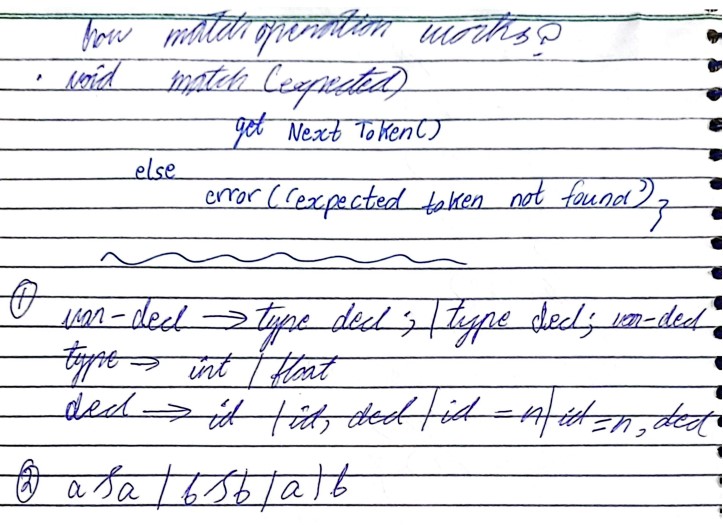 how match operation works?
• void match (expected)
get Next Token()
else
error ('expected token not found');
① var-decl → type decl ; | type decl; var-decl
type → int | float
decl → id | id, decl | id = n | id = n, decl
② a S a | b S b | a | b